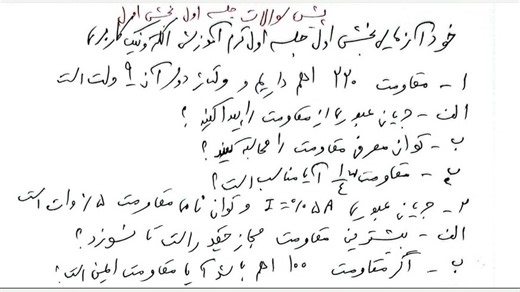 پیش سوالات جلسه اول بخش اول
خودآزمایی بخش اول جلسه اول ترم آموزش الکترونیک کاربردی
۱- مقاومت ۲۲۰ اهم داریم و ولتاژ دو سر آن ۹ ولت است
الف - جریان عبوری از مقاومت را پیدا کنید ؟
ب - توان مصرفی مقاومت را محاسبه کنید ؟
پ - مقاومت ¼ w آیا مناسب است ؟
۲- جریان عبوری I = ۰/۰۵A و توان نامی مقاومت ۰/۵ وات است
الف - بیشترین مقاومت مجاز چقدر است تا نسوزد ؟
ب - اگر مقاومت ۱۰۰ اهم باشد آیا مقاومت ایمن است ؟